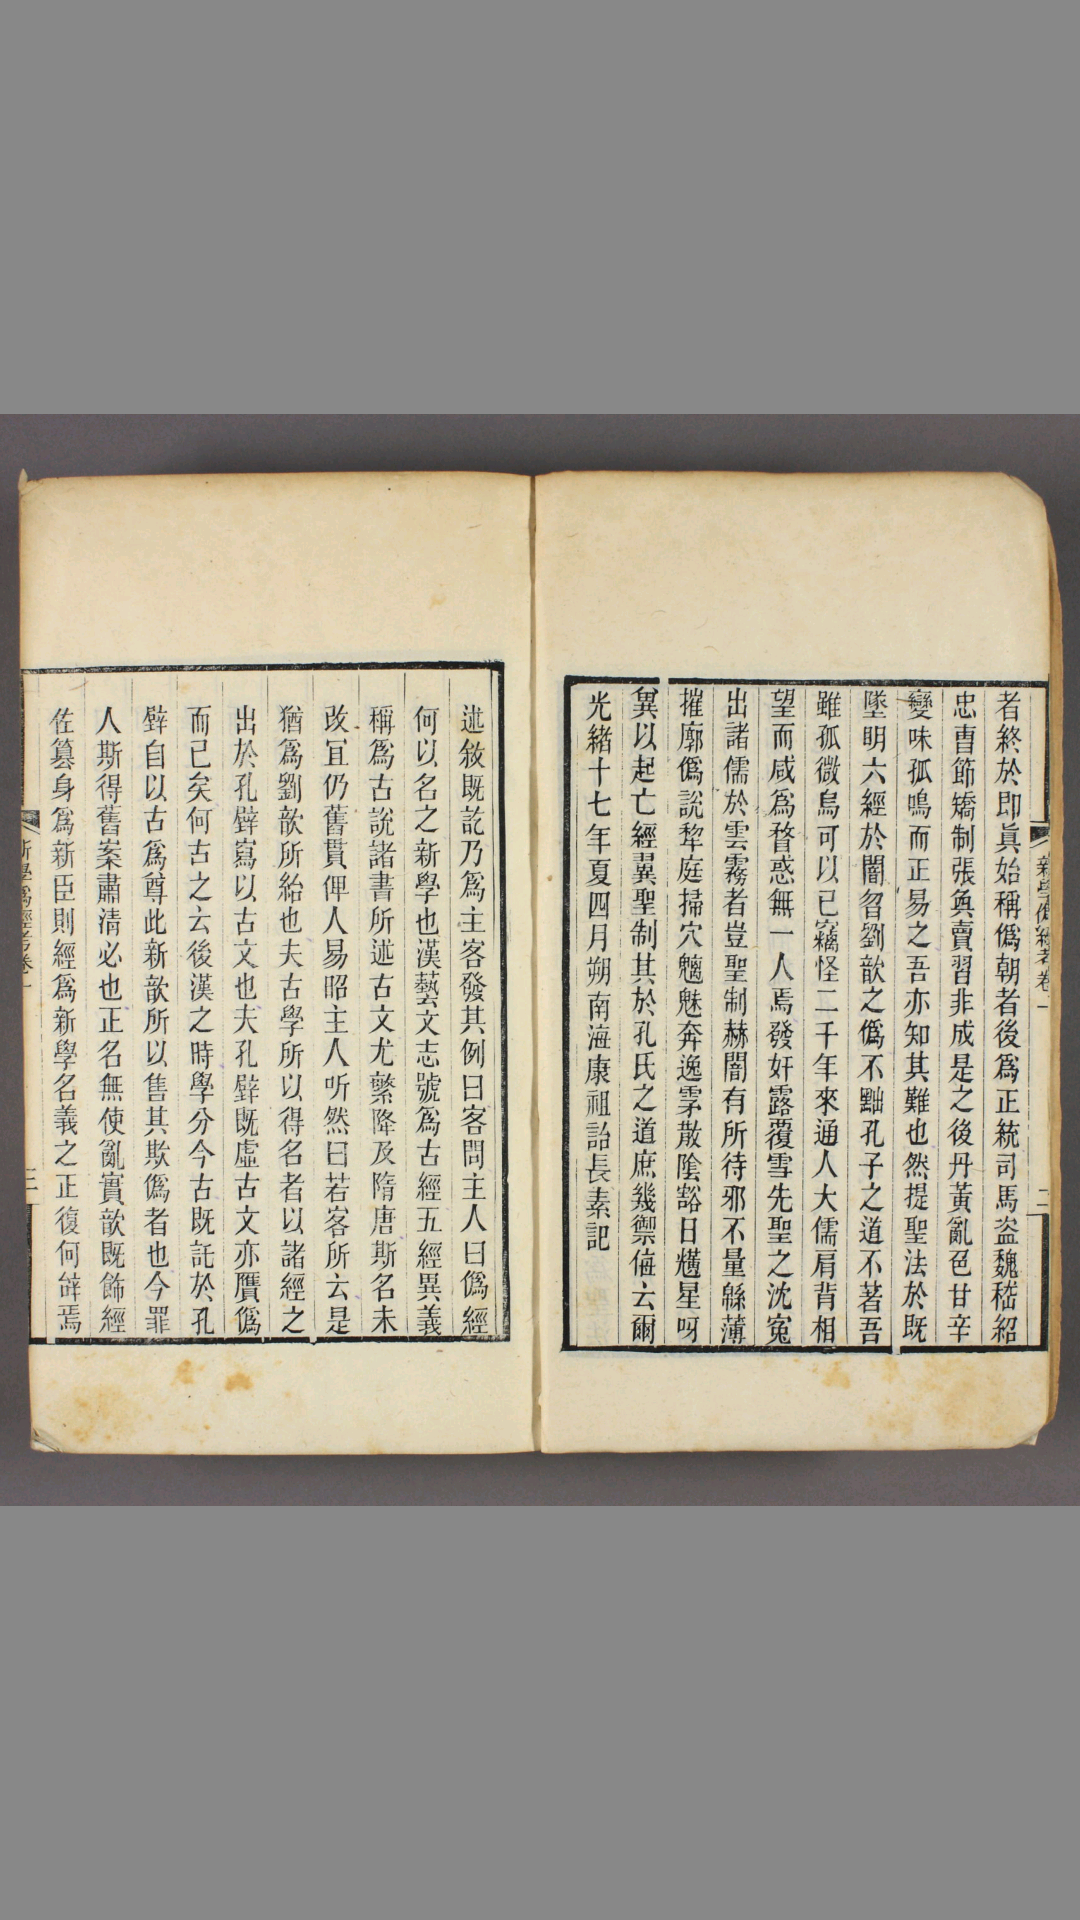 者終於即眞始稱僞朝者後爲正統司馬盜魏嵇紹
忠曺節矯制張奐賣習非成是之後丹黃亂色甘辛
變味孤鳴而正易之吾亦知其難也然提聖法於既
墜明六經於闇曶劉歆之僞不黜孔子之道不著吾
雖孤微烏可以已竊怪二千年來通人大儒肩背相
望而咸爲瞀惑無一人焉發奸露覆雪先聖之沈寃
出諸儒於雲霧者豈聖制赫闇有所待邪不量緜薄
摧廓僞說犂庭掃穴魑魅奔逸雺散陰豁日㸅星呀
兾以起亡經翼聖制其於孔氏之道庶幾禦侮云爾
光緒十七年夏四月朔南海康祖詒長素記
新學僞經考卷一
二
述敘既訖乃爲主客發其例曰客問主人曰僞經
何以名之新學也漢藝文志號爲古經五經異義
稱爲古說諸書所述古文尤繁降及隋唐斯名未
改宜仍舊貫俾人易昭主人听然曰若客所云是
猶爲劉歆所紿也夫古學所以得名者以諸經之
出於孔壁寫以古文也夫孔壁既虛古文亦贋僞
而已矣何古之云後漢之時學分今古既託於孔
壁自以古爲尊此新歆所以售其欺僞者也今罪
人斯得舊案肅清必也正名無使亂實歆既飾經
佐篡身爲新臣則經爲新學名義之正復何辭焉
新學僞經考卷一
三